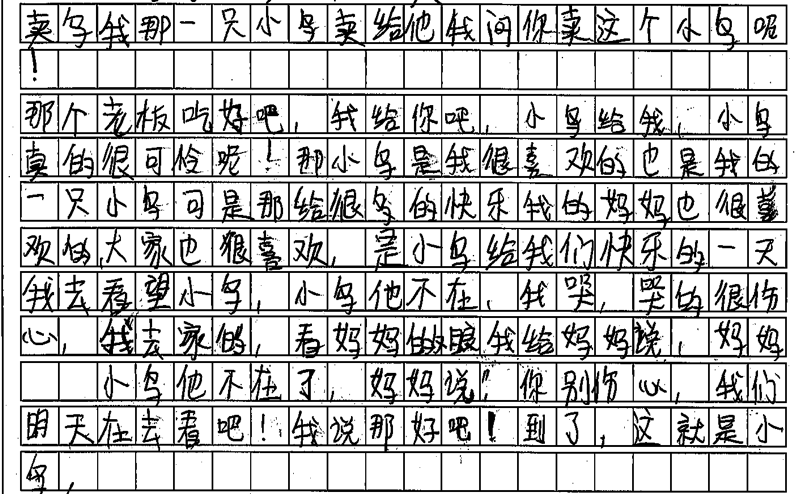 卖鸟我那一只小鸟卖给他我问你卖这个小鸟呢
!
那个老板吃好吧,我给你吧,小鸟给我,小鸟
真的很可怜呢!那小鸟是我很喜欢的也是我的
一只小鸟可是那给很鸟的快乐我的妈妈也很喜
欢的,大家也狠喜欢,是小鸟给我们快乐的一天
我去看望小鸟,小鸟他不在,我哭,哭的很伤
心,我去家的,看妈妈的眼我给妈妈说,妈妈
小鸟他不在了,妈妈说"你别伤心,我们
明天在去看吧!我说那好吧!到了,这就是小
鸟,